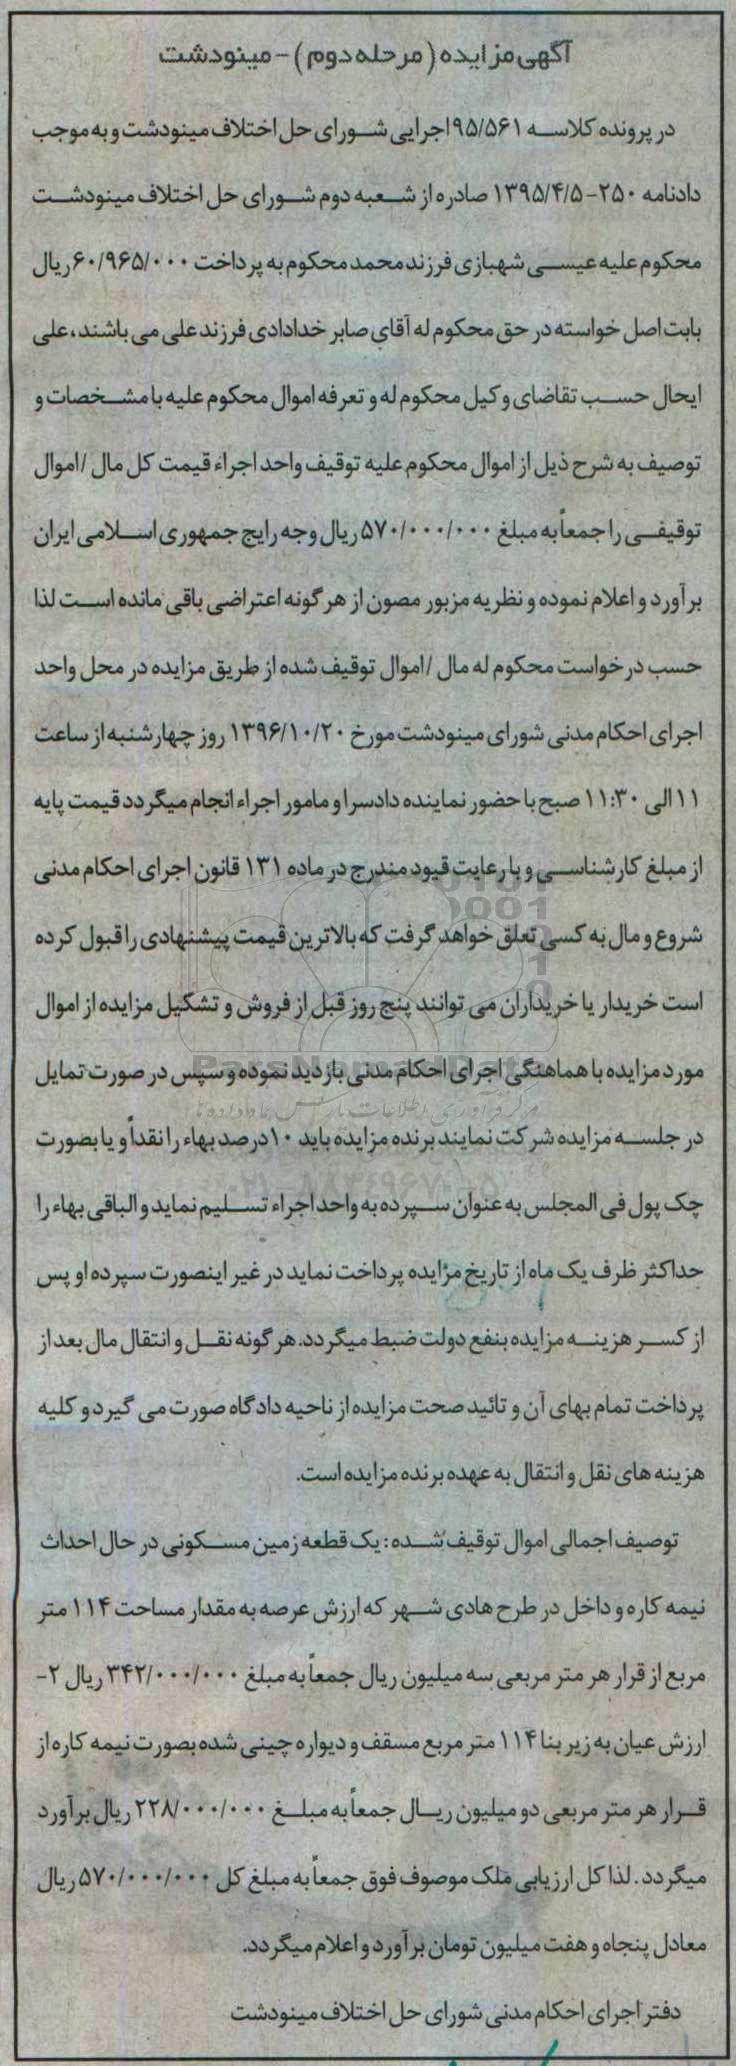 آگهی مزایده (مرحله دوم) - مینودشت
در پرونده کلاسه ۹۵/۵۶۱ اجرایی شورای حل اختلاف مینودشت و به موجب
دادنامه ۲۵۰-۱۳۹۵/۴/۵ صادره از شعبه دوم شورای حل اختلاف مینودشت
محکوم علیه عیسی شهبازی فرزند محمد محکوم به پرداخت ۶۰/۹۶۵/۰۰۰ ریال
بابت اصل خواسته در حق محکوم له آقای صابر خدادادی فرزند علی می باشند، علی
ایحال حسب تقاضای وکیل محکوم له و تعرفه اموال محکوم علیه با مشخصات و
توصیف به شرح ذیل از اموال محکوم علیه توقیف واحد اجراء قیمت کل مال / اموال
توقیفی را جمعاً به مبلغ ۵۷۰/۰۰۰/۰۰۰ ریال وجه رایج جمهوری اسلامی ایران
برآورد و اعلام نموده و نظریه مزبور مصون از هرگونه اعتراضی باقی مانده است لذا
حسب درخواست محکوم له مال / اموال توقیف شده از طریق مزایده در محل واحد
اجرای احکام مدنی شورای مینودشت مورخ ۱۳۹۶/۱۰/۲۰ روز چهارشنبه از ساعت
۱۱ الی ۱۱:۳۰ صبح با حضور نماینده دادسرا و مامور اجراء انجام میگردد قیمت پایه
از مبلغ کارشناسی و با رعایت قیود مندرج در ماده ۱۳۱ قانون اجرای احکام مدنی
شروع و مال به کسی تعلق خواهد گرفت که بالاترین قیمت پیشنهادی را قبول کرده
است خریدار یا خریداران می توانند پنج روز قبل از فروش و تشکیل مزایده از اموال
مورد مزایده با هماهنگی اجرای احکام مدنی بازدید نموده و سپس در صورت تمایل
در جلسه مزایده شرکت نمایند برنده مزایده باید ۱۰ درصد بهاء را نقداً و یا بصورت
چک پول فی المجلس به عنوان سپرده به واحد اجراء تسلیم نماید و الباقی بهاء را
حداکثر ظرف یک ماه از تاریخ مزایده پرداخت نماید در غیر اینصورت سپرده او پس
از کسر هزینه مزایده بنفع دولت ضبط میگردد. هرگونه نقل و انتقال مال بعد از
پرداخت تمام بهای آن و تائید صحت مزایده از ناحیه دادگاه صورت می گیرد و کلیه
هزینه های نقل و انتقال به عهده برنده مزایده است.
توصیف اجمالی اموال توقیف شده: یک قطعه زمین مسکونی در حال احداث
نیمه کاره و داخل در طرح هادی شهر که ارزش عرصه به مقدار مساحت ۱۱۴ متر
مربع از قرار هر متر مربعی سه میلیون ریال جمعاً به مبلغ ۳۴۲/۰۰۰/۰۰۰ ریال ۲-
ارزش عیان به زیر بنا ۱۱۴ متر مربع مسقف و دیواره چینی شده بصورت نیمه کاره از
قرار هر متر مربعی دو میلیون ریال جمعاً به مبلغ ۲۲۸/۰۰۰/۰۰۰ ریال برآورد
میگردد. لذا کل ارزیابی ملک موصوف فوق جمعاً به مبلغ کل ۵۷۰/۰۰۰/۰۰۰ ریال
معادل پنجاه و هفت میلیون تومان برآورد و اعلام میگردد.
دفتر اجرای احکام مدنی شورای حل اختلاف مینودشت